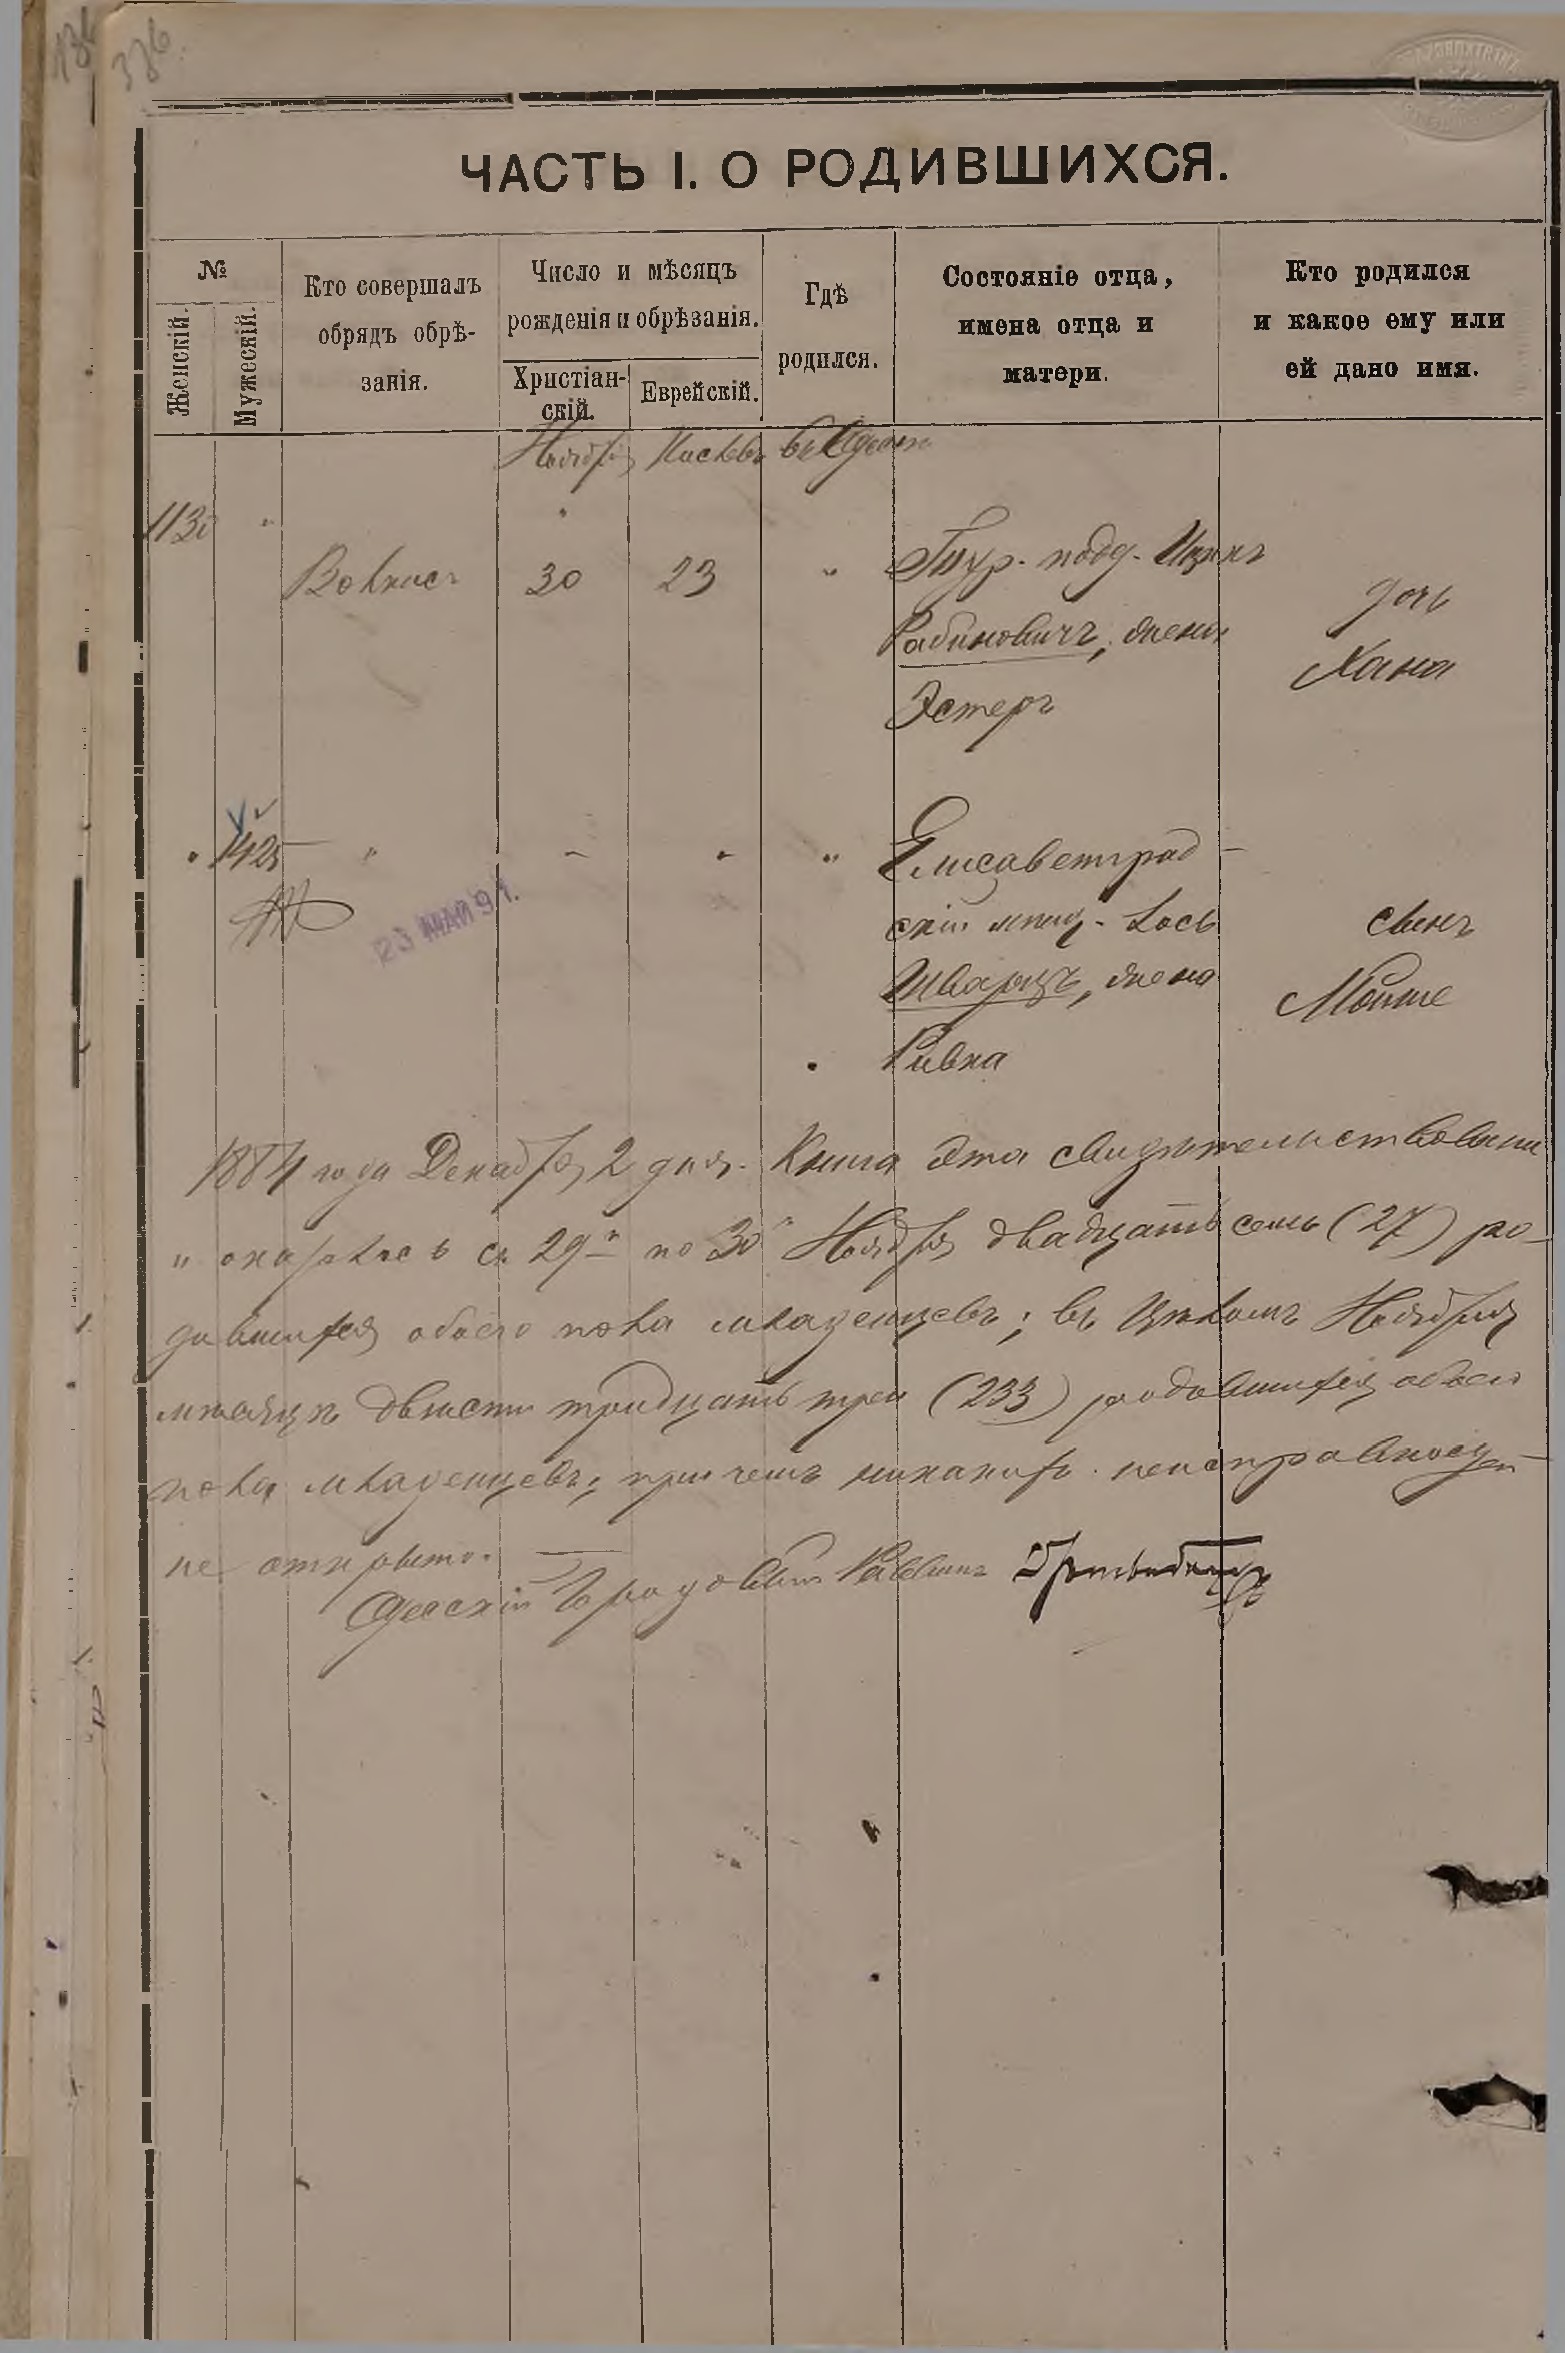 336.
ЧАСТЬ I. О РОДИВШИХСЯ.
№
Женскій.
Мужескій.
Кто совершалъ
обрядъ обрѣ-
занія.
Число и мѣсяцъ
рожденія и обрѣзанія.
Христіан-
скій.
Еврейскій.
Гдѣ
родился.
Состояніе отца,
имена отца и
матери.
Кто родился
и какое ему или
ей дано имя.
Ноября Кислевъ въ Одессѣ
1130 "
Волкисъ 30 23 " подд. Ицикъ
Рабиновичъ, жена
Эстеръ
дочь
Хана
" 1425 " " " " Елисаветград-
скій мѣщ. Іось
Шварцъ, жена
Ривка
сынъ
Мойше
23 МАЙ 91.
1884 года Декабря 2 дня. Книга эта свидѣтельствована
и оказалось съ 29го по 30 Ноября двадцать семь (27) ро-
дившихся обоего пола младенцевъ; въ Цѣломъ Ноябрѣ
мѣсяцѣ двѣсти тридцать три (233) родившихся обоего
пола младенцевъ; при чемъ никакихъ неисправностей
не открыто.
Одесскій Городовой Раввинъ